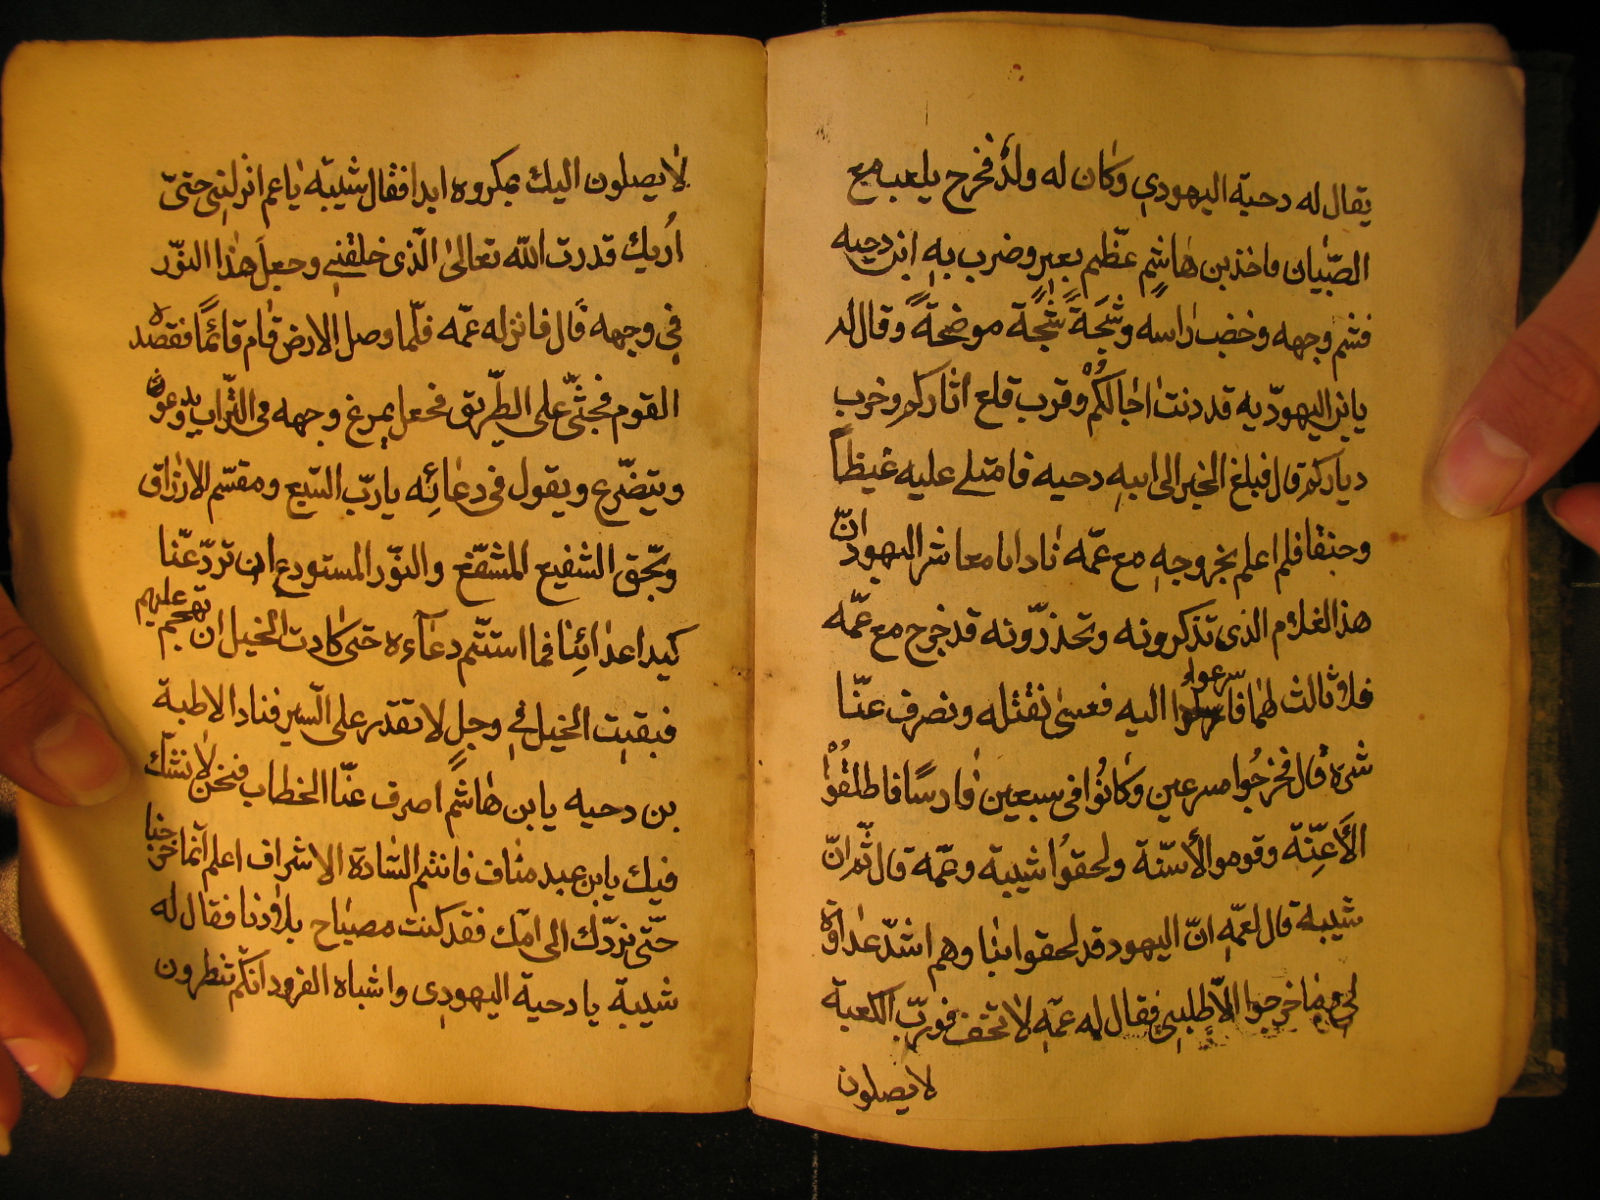 يقال له دحية اليهودي وكان له ولدٌ فخرج يلعب مع
الصّبيان فاخذ بن هاشمٍ عظم بعيرٍ وضرب به ابن دحيه
فشم وجهه وخضب راسه وشجّةً شجّةً موضحةً وقال له
يابن اليهوديه قد دنت اجالكُمْ وقرب قلع اثاركم وخرب
دياركم قال فبلغ الخبر الى ابيهِ دحيه فامتلى عليه غيظاً
وحنقا فلم اعلم بخروجهِ مع عمّه نادا يا معاشر اليهود انّ
هذ الغلام الذى تذكرونه وتحذرّونه قد خرج مع عمّه
فلا ثالث لهما فاسرعوا اليه فعسىٰ نقتله ونصرف عنّا
شره قال فخرجُوا مسرعين وكانُوا فى سبعين فارسًا فاطلقُوْا
الأَعِنّة وقومو الأسنّة ولحقوُا شيبة وعمّه قال ثّم انّ
شيبة قال لعمّهِ انّ اليهود قد لحقوا بنا وهم اشدّ عداوة
لى وما خرجوا الّا لطلبى فقال له عمّهِ لا تخف فوربّ الكعبة
لا يصلون
لا يصلون اليك بمكروه ابدا فقال شيبة يا عم انزلنى حتىّ
اُريك قدرت الله تعالىٰ الّذى خلقنى وجعل هٰذا النوّر
فى وجهه قال فانزله عمّه فلّما وصل الارض قام قائمًا فقصده
القوم فجثىّ على الطّريق فجعل يمرغ وجهه فى التّراب يدعوا
ويتضرّع ويقول فى دعائِه ياربّ السّبع ومقسّم الارزاق
وبحّق الشفيع المشفّع والنوّر المستودع ان تردّ عنّا
كيد اعدائِنا فما استتّم دعآءه حتى كادت الخيل ان تهجم عليهم
فبقيت الخيل فى وجلٍ لا تقدر على السّير فنادا لاطية
بن دحيه يا بن هاشمٍ اصرف عنّا الخطاب فنحن لا نشّك
فيك يابن عبد مناف فانتم السّادة الاشراف اعلم انّما خرجنا
حتّى نردّك الى امّك فقد كنت مصباح بلادنا فقال له
شيبة يا دحية اليهودى واشباه القرود انّكم تنظرون